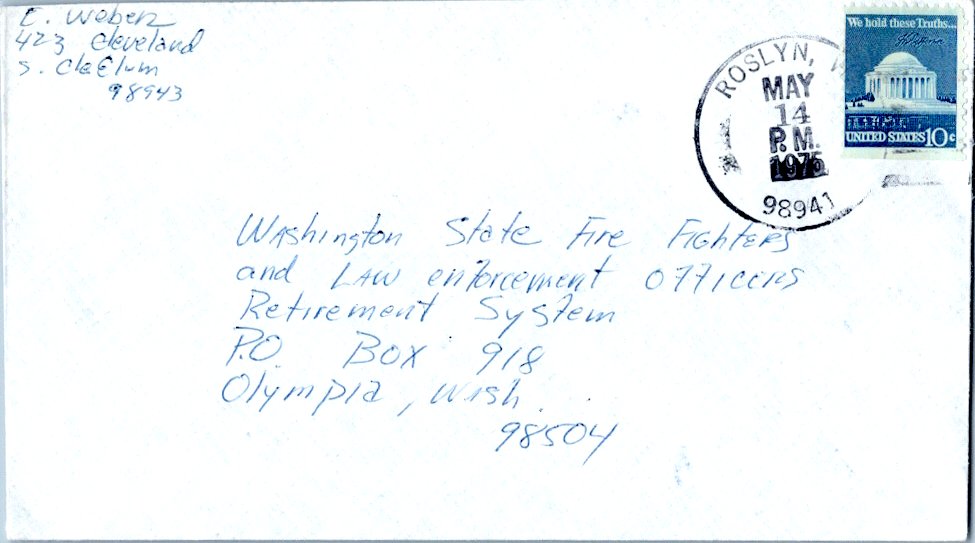 E. Weber
423 Cleveland
S. Cle Elum
98943
ROSLYN,
MAY
14
P.M.
1975
98941
We hold these Truths...
UNITED STATES 10c
Washington State Fire Fighters
and Law enforcement officers
Retirement System
P.O. Box 918
Olympia, Wash.
98504